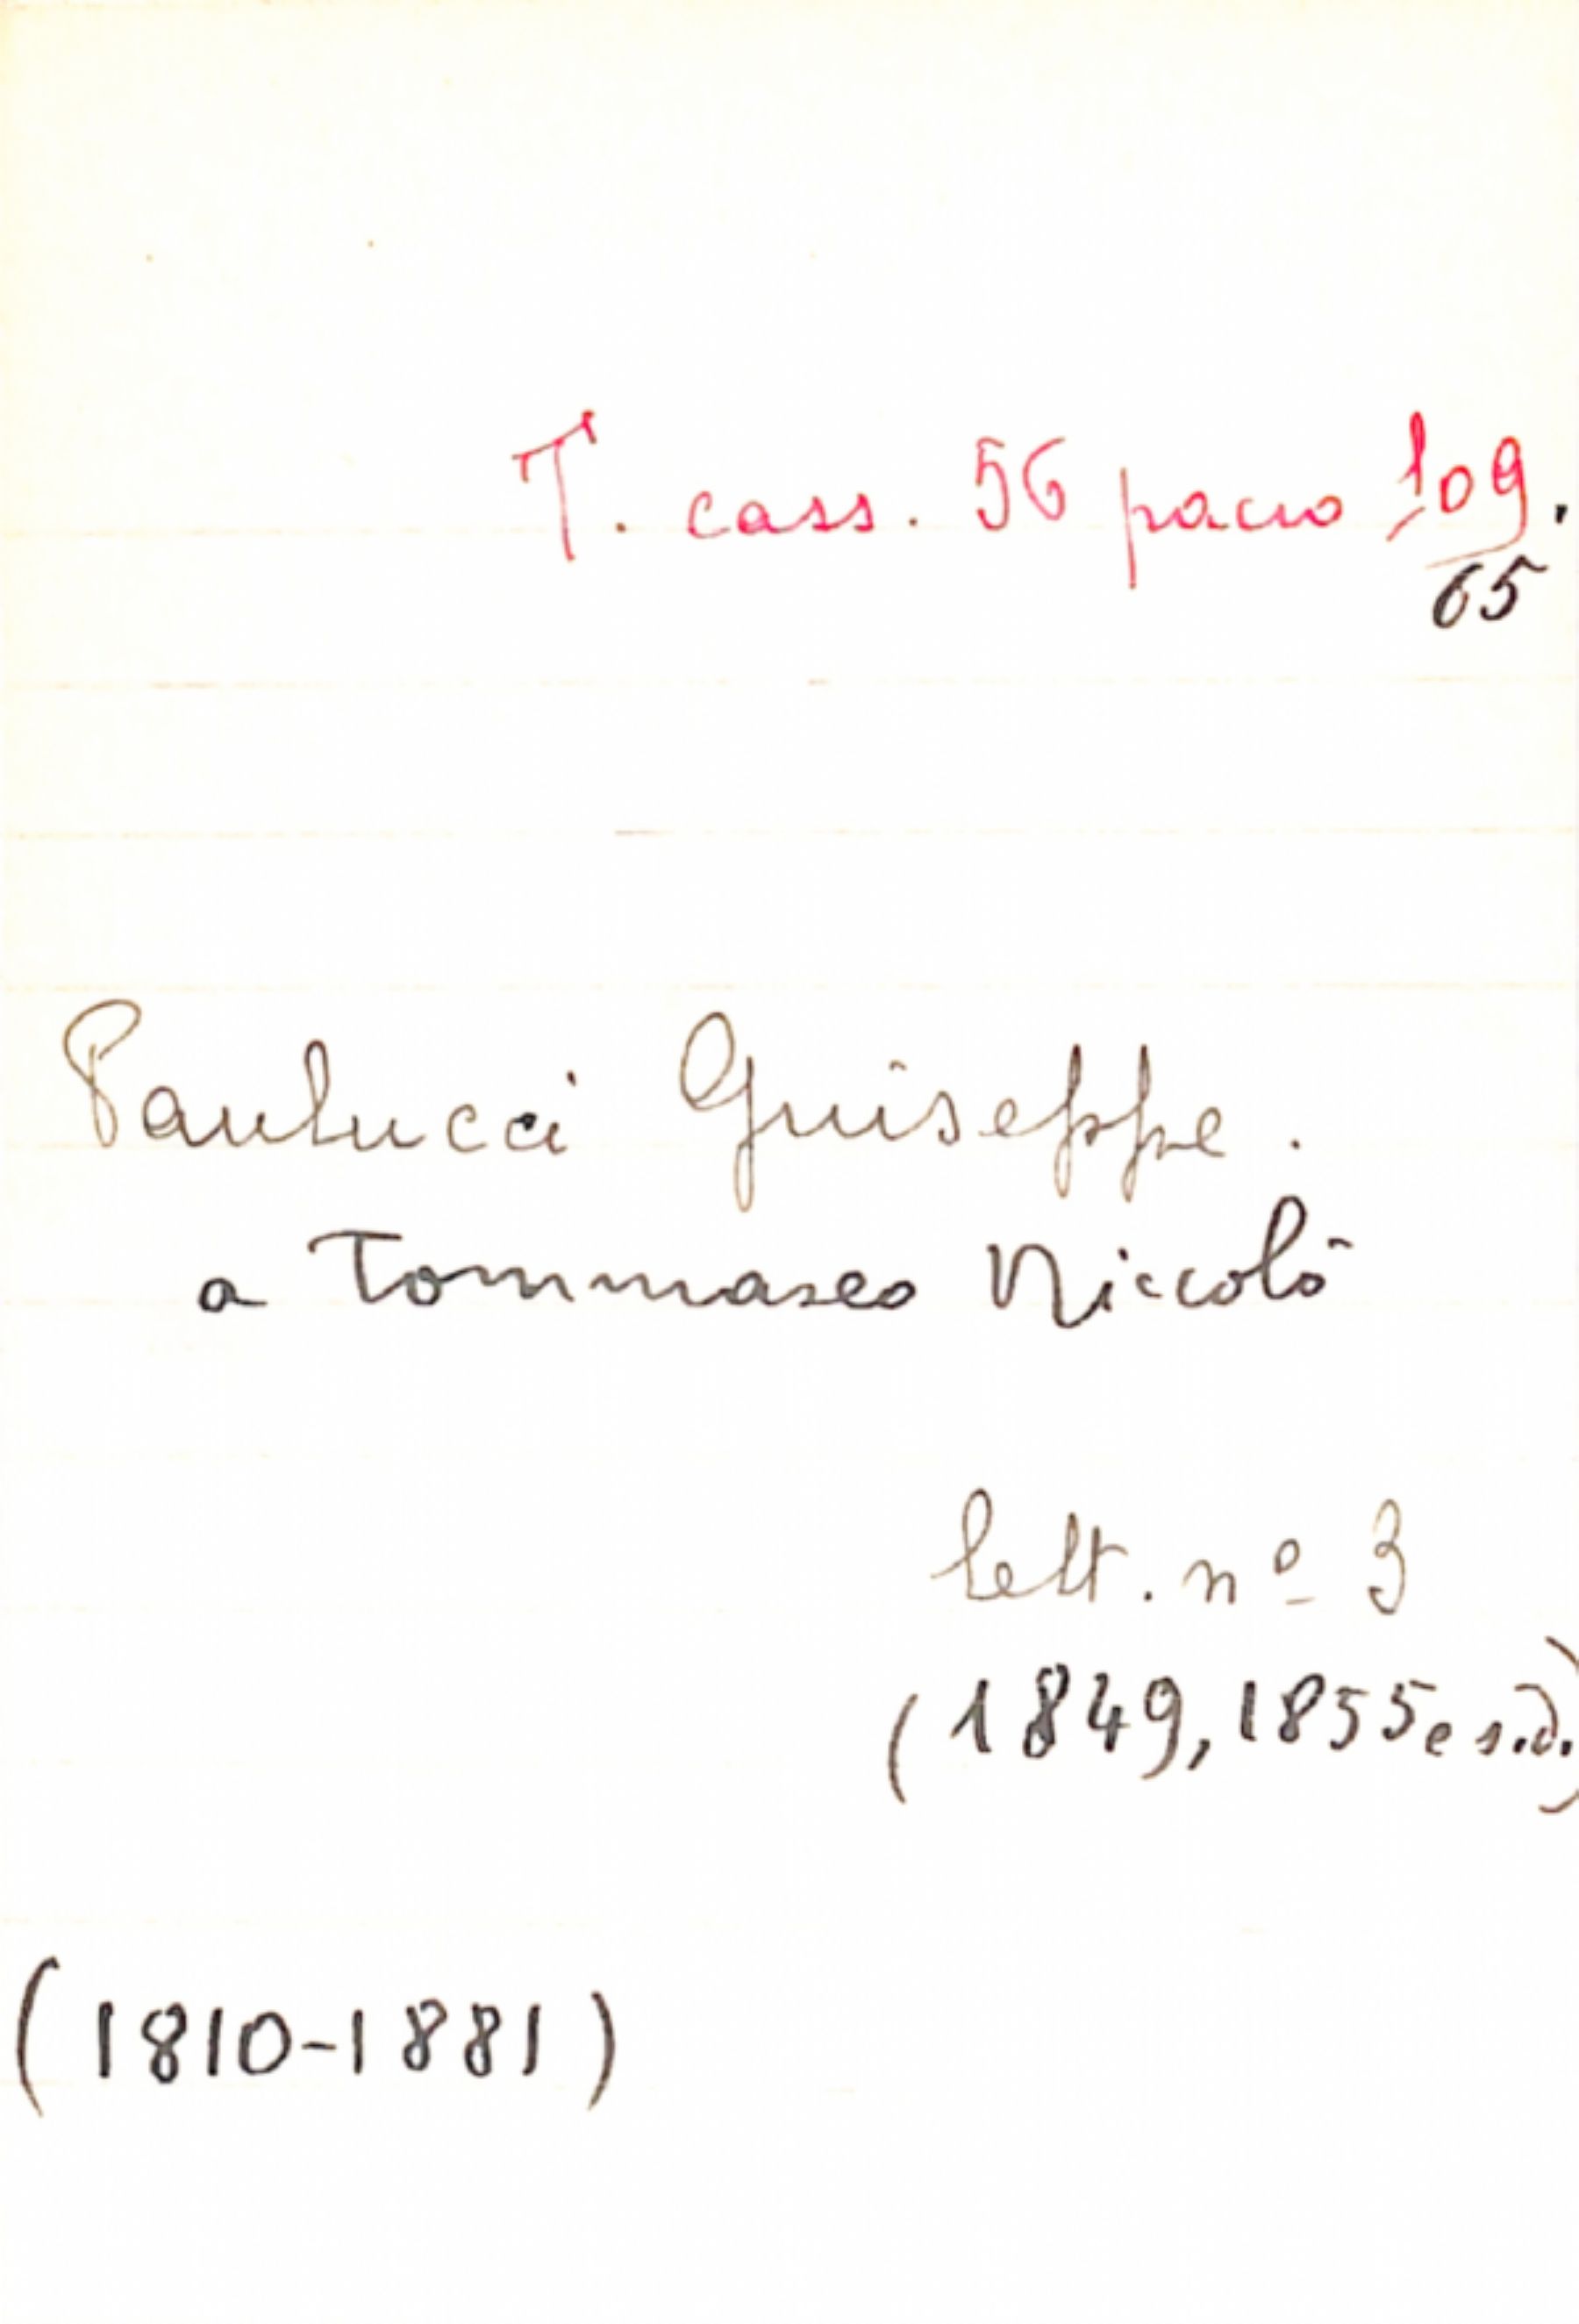 T. cass. 56 pacco 109.
65
Paulucci Giuseppe.
a Tommaseo Niccolò
lett. nº 3
(1849, 1855 e s.d.)
(1810-1881)